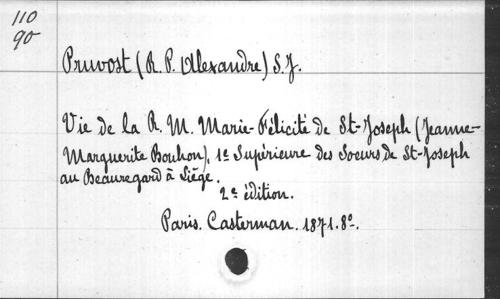 110
90
Pruvost (R. P. Alexandre) S. J.
Vie de la R. M. Marie-Félicité de St-Joseph (Jeanne-
Marguerite Bouhon), 1e Supérieure des Soeurs de St-Joseph
au Beauregard à Liége.
2e édition.
Paris. Casterman. 1871. 8o.